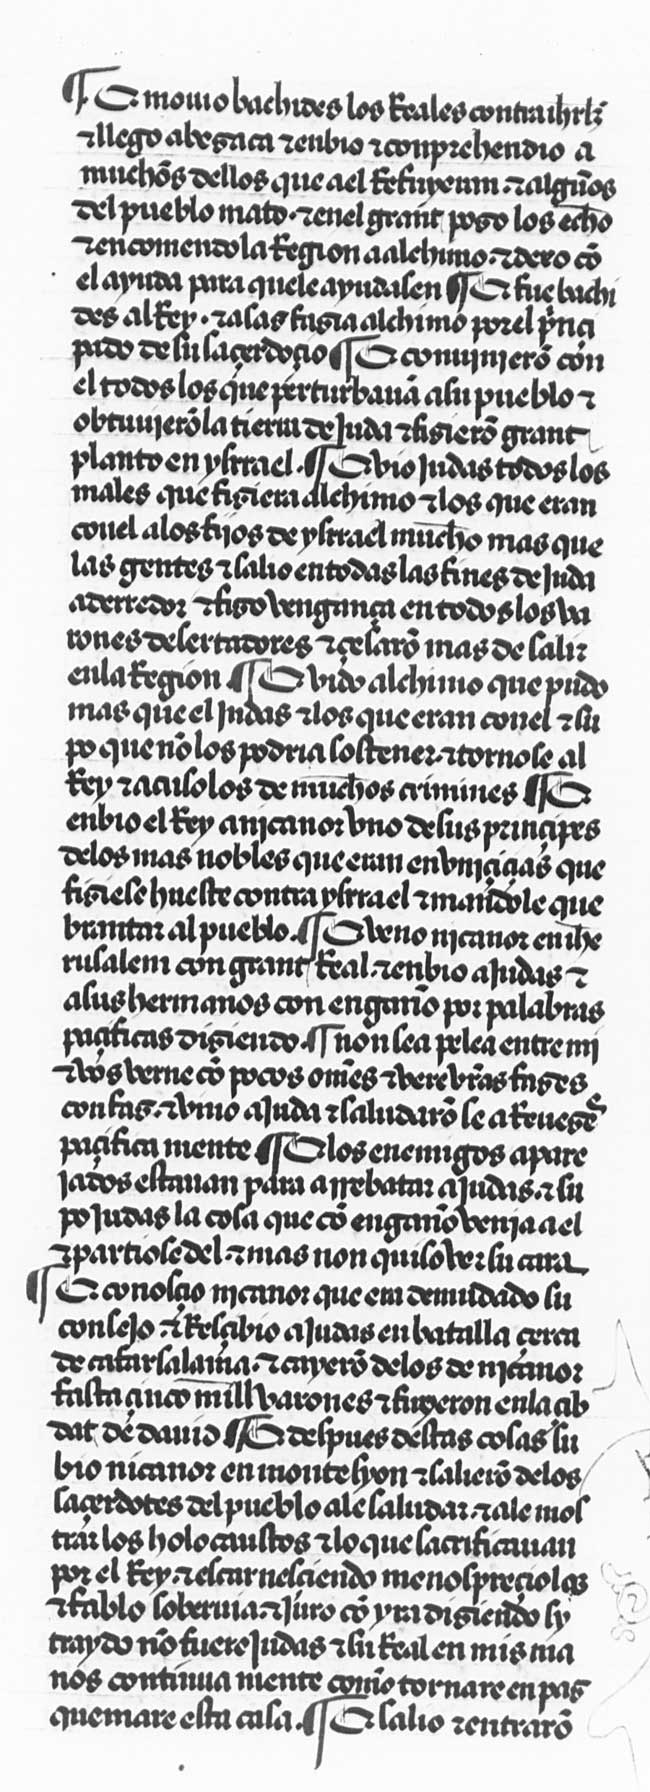 ¶ E mouio bachides los Reales contra ihrlm̃
⁊ llego a besaca ⁊ enbio ⁊ conprehendio a
muchõs dellos que a el Refuyerun ⁊ algũos
del pueblo mato · ⁊ en el grant poso los echo
⁊ encomendo la Region a alchimo · ⁊ dexo cõ
el ayuda para que le ayudasen ¶ E fue bachi
des al Rey · ⁊ asas fasia alchimo por el p̃nçi
pado de su saçerdoçio ¶ E conuinierõ con
el todos los que perturbauã a su pueblo ⁊
obtuuierõ la tierra de Juda ⁊ fisierõ grant
planto en ysrrael · ¶ E vio judas todos los
males que fisiera alchimo ⁊ los que eran
conel a los fijos de ysrrael mucho mas que
las gentes ⁊ salio en todas las fines de juda
aderredor ⁊ fiso vengança en todos los va
rones desertadores ⁊ çesarõ mas de salir
en la Region ¶ E vido alchimo que pudo
mas que el judas ⁊ los que eran conel ⁊ su
po que nõ los podria sostener · ⁊ tornose al
Rey ⁊ acusolos de muchos crimines ¶ E
enbio el Rey a nicanor vno de sus prinçipes
delos mas nobles que eran que
fisiese hueste contra ysrrael ⁊ mandole que
brantar al pueblo · ¶ E veno nicanor en ihe
rusalem con grant Real · ⁊ enbio a judas ⁊
a sus hermanos con engaño por palabras
paçificas disiendo · ¶ non sea pelea entre mi
⁊ vós verne cõ pocos omẽs ⁊ vere vr̃as fases
con fas · ⁊ vino a juda ⁊ saludarõ se a Reuesẽs
paçifica mente ¶ E los enemigos apare
jados estauan para arrebatar a judas · ⁊ su
po judas la cosa que cõ engaño venia a el
⁊ partiose del · ⁊ mas non quiso ver su cara
¶ E conosçio nicanor que era demudado su
consejo · ⁊ Resçibio a judas en batalla çerca
de cafarsalama · ⁊ cayerõ delos de nicanor
fasta çinco mill varones ⁊ fuyeron en la çib
dat de dauid ¶ E despues destas cosas su
bio nicanor en monte syon ⁊ salierõ delos
saçerdotes del pueblo a le saludar · ⁊ a le mos
trar los holocaustos ⁊ lo que sacrificauan
por el Rey · ⁊ escarnesciendo menospreçiolos
⁊ fablo soberuia · ⁊ juro cõ yra disiendo sy
traydo nõ fuere judas ⁊ su Real en mis ma
nos continua mente como tornare en pas
quemare esta casa · ¶ E salio ⁊ entrarõ